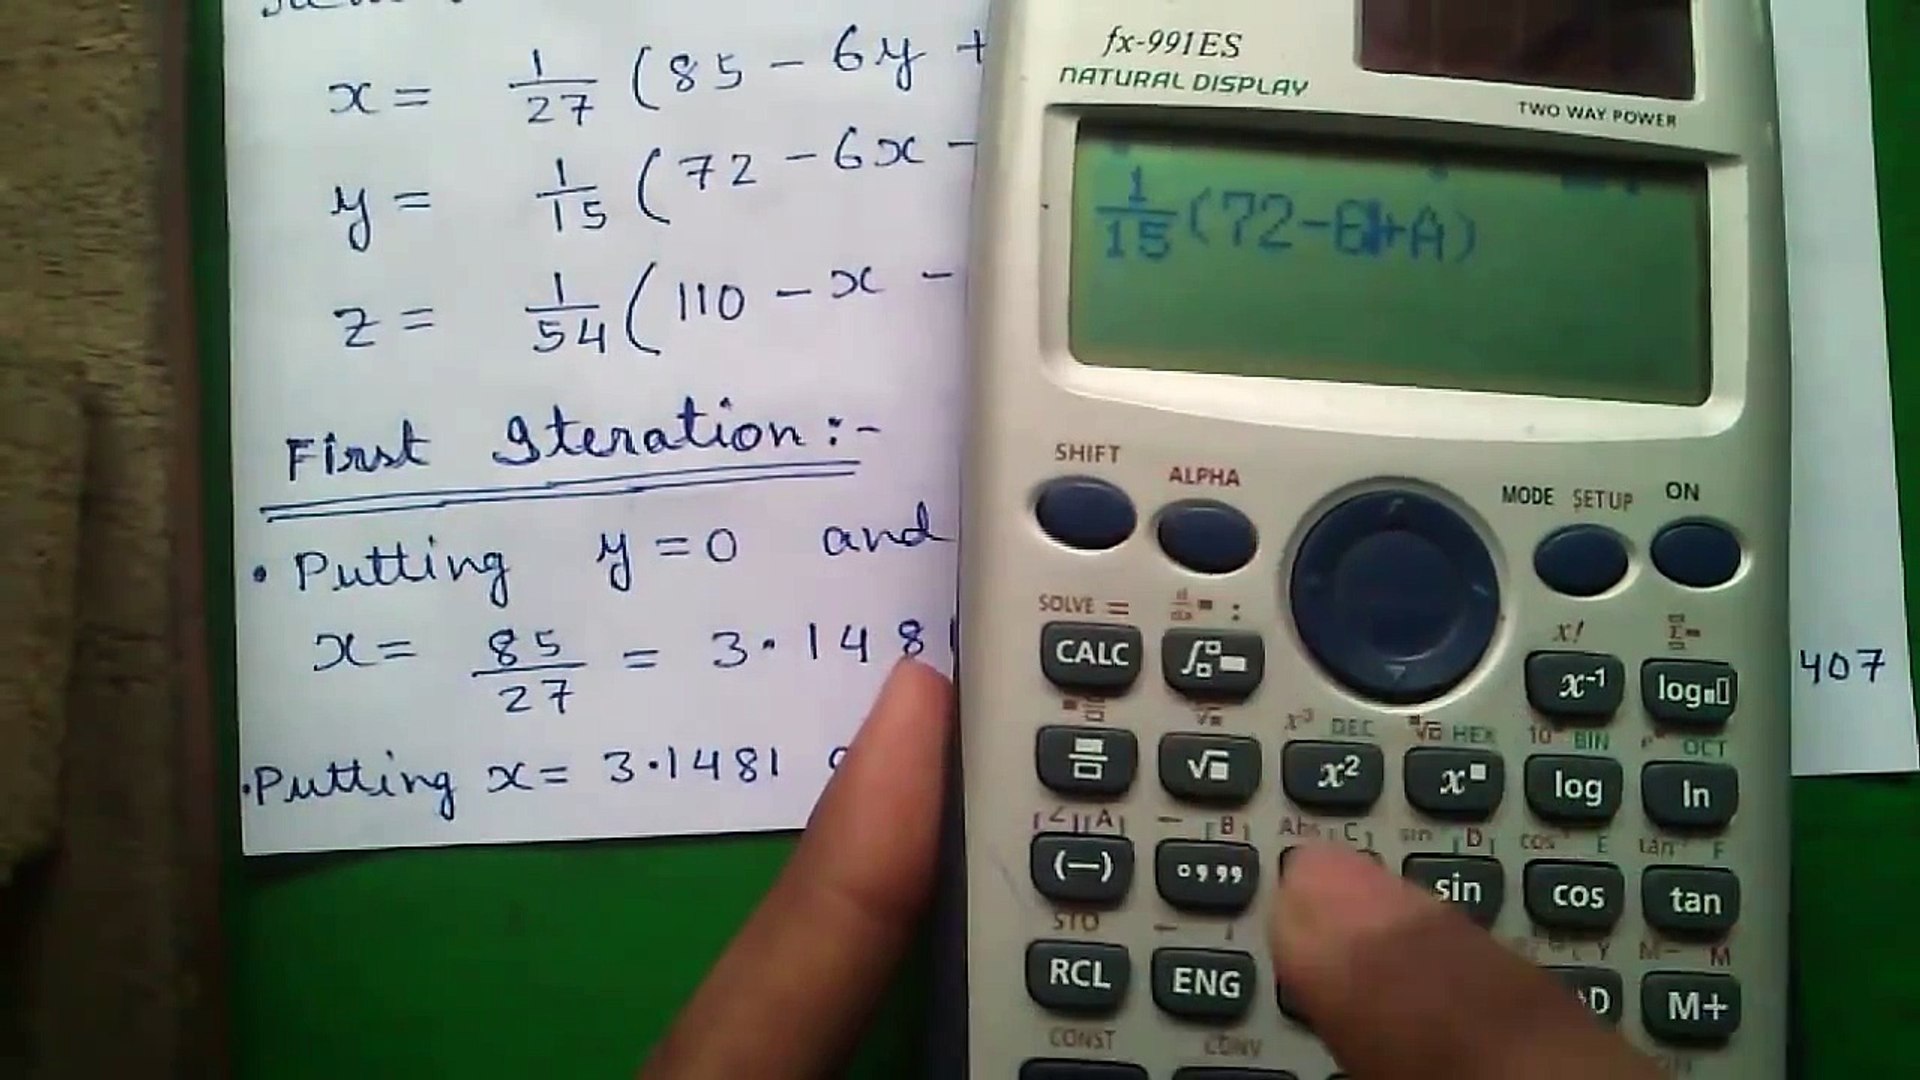 x = 1/27 (85 - 6y +
y = 1/15 (72 - 6x -
z = 1/54 (110 - x -
First Iteration :-
• Putting y = 0 and
x = 85/27 = 3.1481
• Putting x = 3.1481
407
fx-991ES
NATURAL DISPLAY
TWO WAY POWER
1/15(72-6+A)
SHIFT ALPHA MODE SETUP ON
SOLVE = d/dx = : x! Σ=
CALC ∫ x⁻¹ log
x³ DEC √ HEX 10 BIN e OCT
√ x² x log ln
∠ A ← B Abs C sin D cos E tan F
(—) ° , ,, sin cos tan
STO ← Y M- M
RCL ENG D M+
CONST CONV